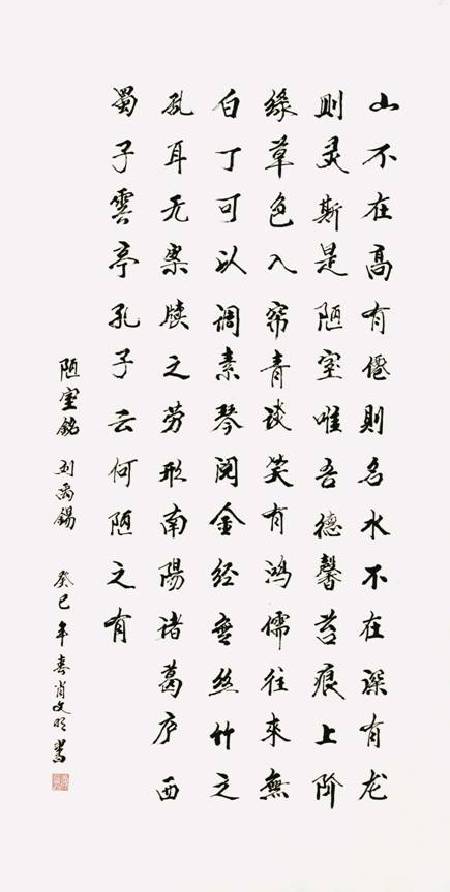 山不在高有僊則名水不在深有龙
则灵斯是陋室唯吾德馨苔痕上阶
緑草色入帘青谈笑有鸿儒往來無
白丁可以调素琴阅金经無丝竹之
乱耳无案牍之劳形南陽诸葛庐西
蜀子雲亭孔子云何陋之有
陋室铭 刘禹锡 癸巳年 肖文